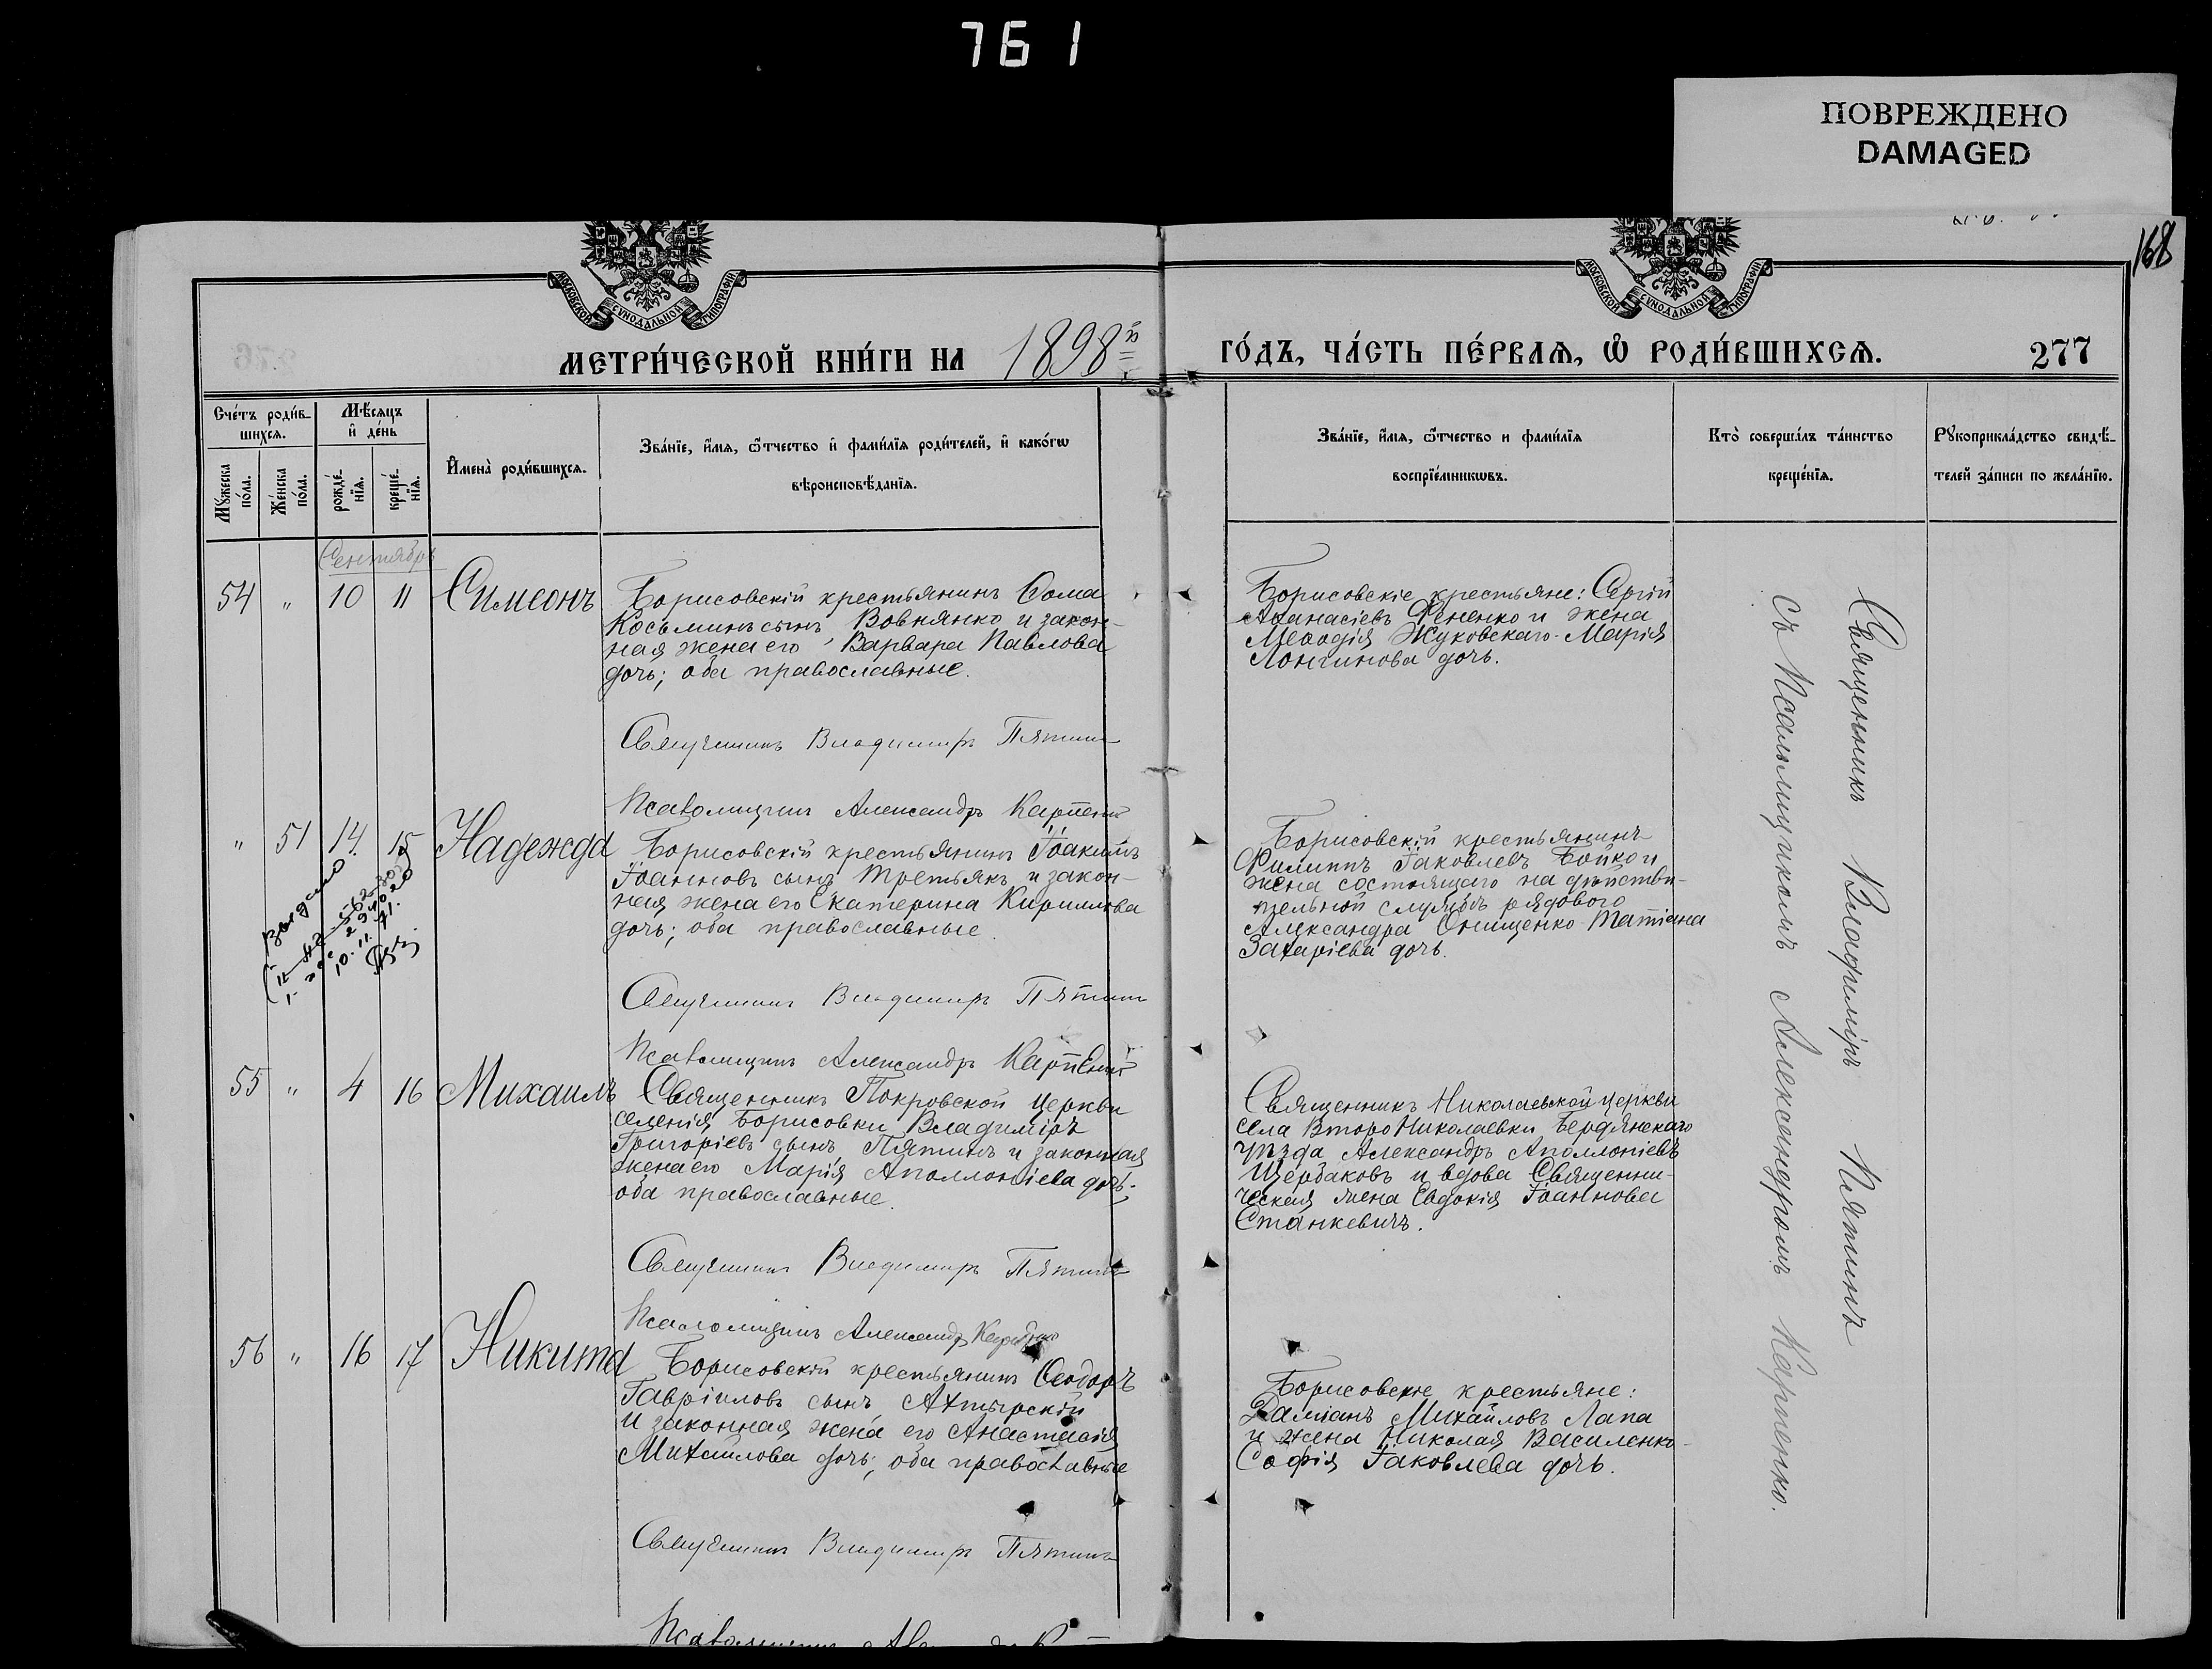 761
ПОВРЕЖДЕНО
DAMAGED
168
МОСКОВСКОЙ СѴНОДАЛЬНОЙ ТИПОГРАФІИ
МОСКОВСКОЙ СѴНОДАЛЬНОЙ ТИПОГРАФІИ
МЕТРИ́ЧЕСКОЙ КНИ́ГИ НА 1898й ГО́ДЪ, ЧА́СТЬ ПЕ́РВАЯ, Ѡ҆ РОДИ́ВШИХСЯ. 277
Сче́тъ роди́в-
шихся.
Мꙋ́жеска
по́ла.
Же́нска
по́ла.
Мѣ́сяцъ
и҆ де́нь
рожде́-
нїя.
креще́-
нїя.
И҆мена̀ роди́вшихся.
Зва́нїе, и҆́мя, ѻ҆́тчество и҆ фами́лїя роди́телей, и҆ како́гѡ
вѣроисповѣ́данїя.
Зва́нїе, и҆́мя, ѻ҆́тчество и фами́лїя
воспрїе́мникѡвъ.
Кто̀ соверша́лъ та́инство
креще́нїя.
Рꙋкоприкла́дство свидѣ́-
телей за́писи по жела́нїю.
Сентябрь
54 " 10 11 Симеонъ
Борисовскій крестьянинъ Ѳома
Косьминъ сынъ Вовнянко и закон-
ная жена его Варвара Павлова
дочь; оба православные.
Священникъ Владиміръ Пятинъ
Псаломщикъ Александръ Карпенко
Борисовскіе крестьяне: Сергій
Аѳанасіевъ Фененко и жена
Меѳодія Жуковскаго Марія
Лонгинова дочь.
" 51 14 15 Надежда
Борисовскій крестьянинъ Іоакимъ
Іоанновъ сынъ Третьякъ и закон-
ная жена его Екатерина Кириллова
дочь; оба православные
Священникъ Владиміръ Пятинъ
Псаломщикъ Александръ Карпенко
10.11.71.
Борисовскій крестьянинъ
Филиппъ Іаковлевъ Бойко и
жена состоящаго на дѣйстви-
тельной службѣ рядового
Александра Онищенко Татіана
Захаріева дочь.
55 " 4 16 Михаилъ
Священникъ Покровской церкви
селенія Борисовки Владиміръ
Григоріевъ сынъ Пятинъ и законная
жена его Марія Аполлоніева дочь;
оба православные.
Священникъ Владиміръ Пятинъ
Псаломщикъ Александръ Карпенко
Священникъ Николаевской церкви
села Второ Николаевки Бердянскаго
уѣзда Александръ Аполлоніевъ
Щербаковъ и вдова Священни-
ческая жена Евдокія Іоаннова
Станкевичъ.
56 " 16 17 Никита
Борисовскій крестьянинъ Ѳеодоръ
Гавріиловъ сынъ Ахтырскій
и законная жена его Анастасія
Михайлова дочь; оба православные
Священникъ Владиміръ Пятинъ
Борисовскіе крестьяне:
Даміанъ Михайловъ Лапа
и жена Николая Василенко
Софія Іаковлева дочь.
Священникъ Владиміръ Пятинъ
съ Псаломщикомъ Александромъ Карпенко.